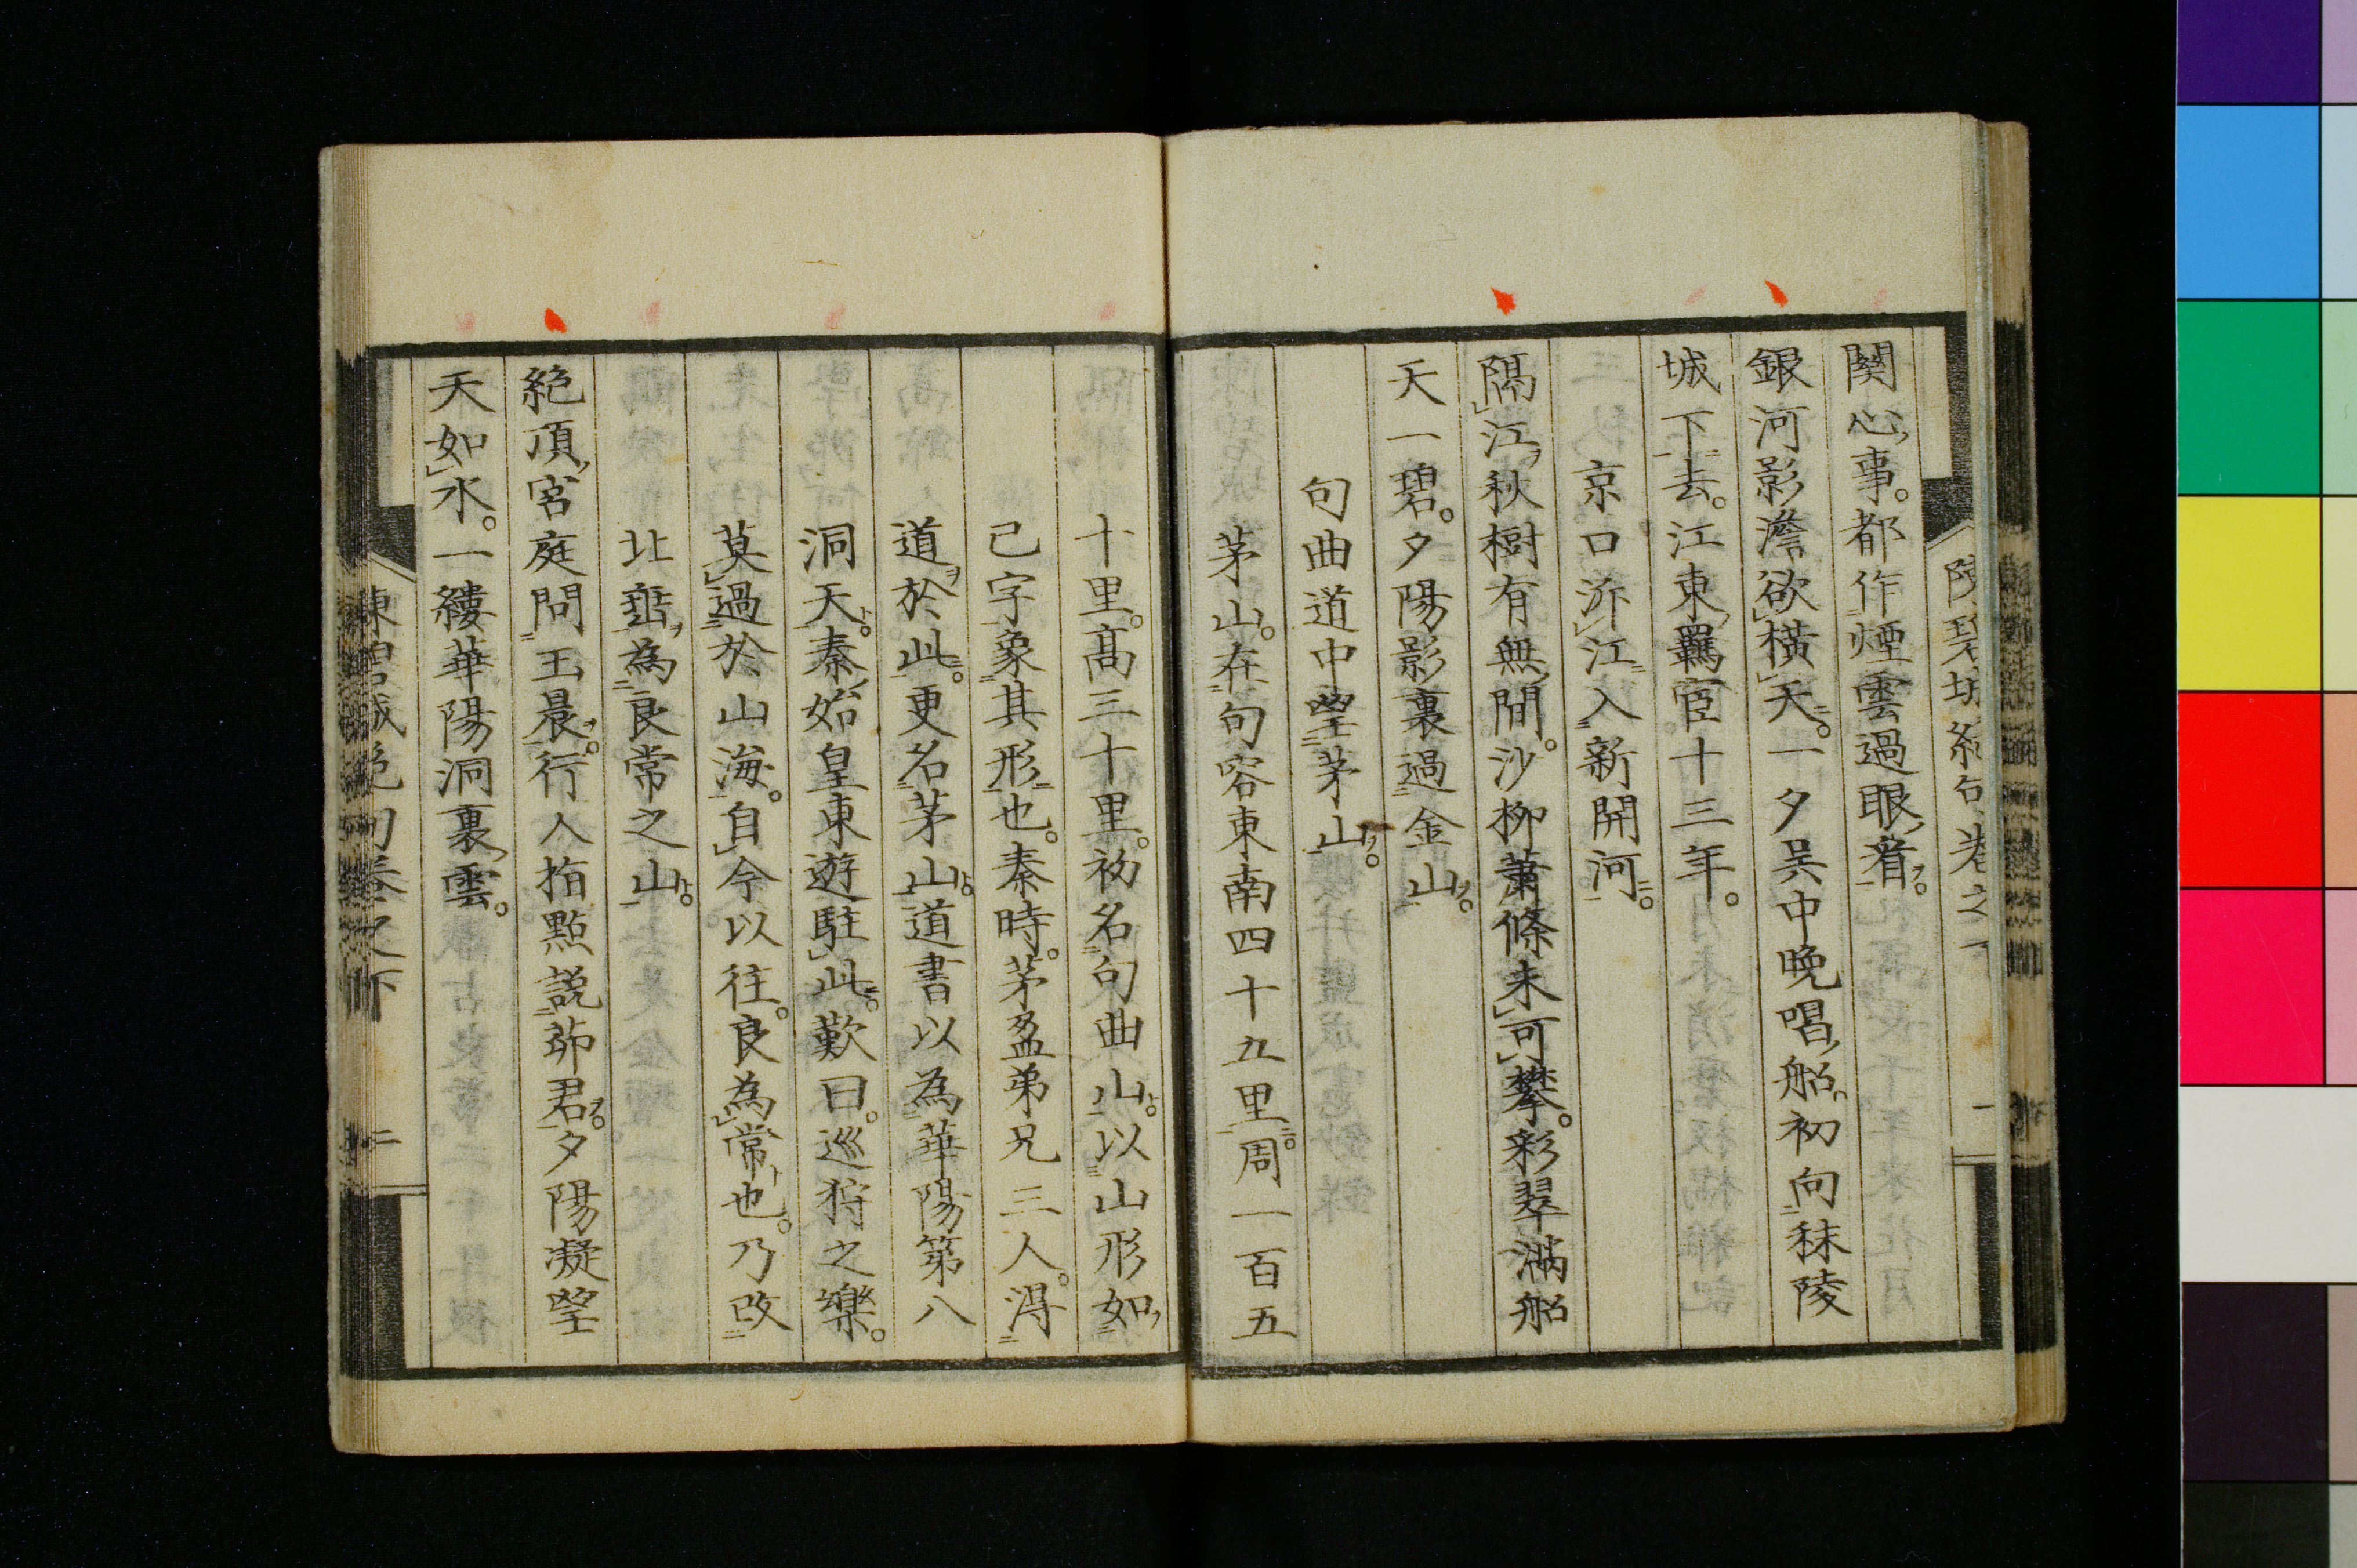 關心事。都作煙雲過眼看。
銀河影澹欲橫天。一夕吳中晚唱船。初向秣陵
城下去。江東羈宦十三年。
京口泝江入新開河。
隔江秋樹有無間。沙柳蕭條未可攀。彩翠滿船
天一碧。夕陽影裏過金山。
句曲道中望茅山。
茅山。在句容東南四十五里。周一百五
十里。高三十里。初名句曲山。以山形如
己字象其形也。秦時。茅盈弟兄三人。得
道於此。更名茅山。道書以為華陽第八
洞天。秦始皇東遊駐此。歎曰。巡狩之樂。
莫過於山海。自今以往。良為常也。乃改
北巒為良常之山。
絕頂宮庭問玉晨。行人指點說茆君。夕陽凝望
天如水。一縷華陽洞裏雲。
陳碧城絕句卷之下
二